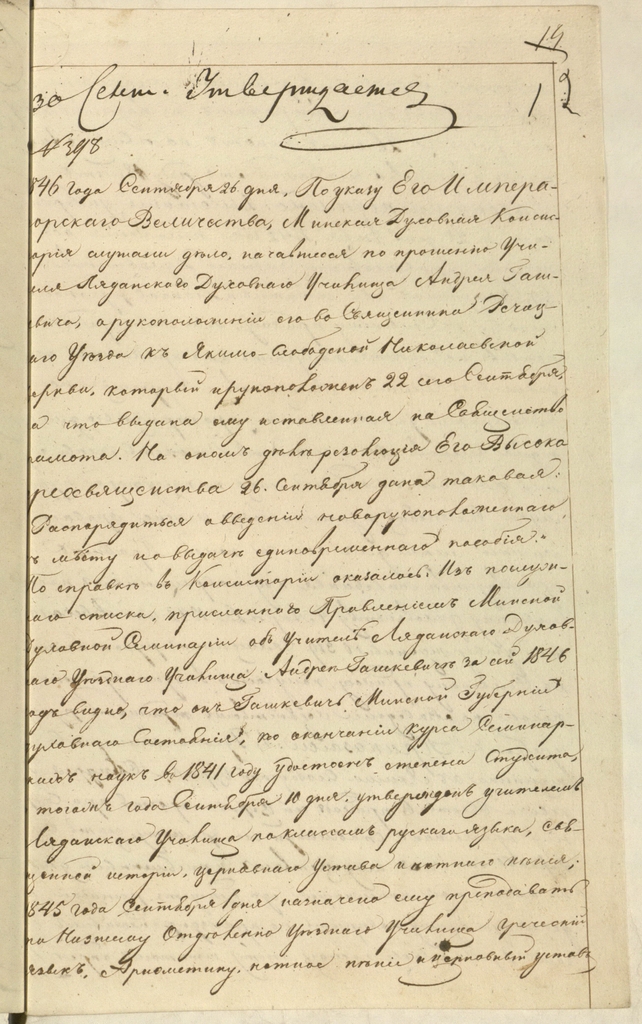 19
30 Сент. Утверждается 1 2
№ 398
846 года Сентября 26 дня, По указу Его Импера-
орскаго Величества, Минская Духовная Консис-
орія слушали дѣло, начавшееся по прошенію Учи-
еля Ляданскаго Духовнаго Училища Андрея Гаш-
евича, о рукоположеніи его во Священника
аго Уѣзда къ Якимо-Слободской Николаевской
еркви, который и рукоположенъ 22 сего Сентября,
а что выдана ему и ставленная на Священство
рамота. На ономъ дѣлѣ резолюція Его Высоко
реосвященства 26. Сентября дана таковая:
Распорядиться о введеніи новорукоположеннаго
ъ мѣсту и о выдачѣ единовременнаго пособія."
По справкѣ въ Консисторіи оказалось: Изъ послуж-
наго списка, присланнаго Правленіемъ Минской
Духовной Семинаріи объ Учителѣ Ляданскаго Духов-
наго Уѣзднаго Училища Андреѣ Гашкевичѣ за сей 1846
одъ видно, что онъ Гашкевичъ Минской Губерніи
уховнаго Состоянія, по окончаніи курса Семинар-
скихъ наукъ въ 1841 году удостоенъ степени Студента,
тогожъ года Сентября 10 дня, утвержденъ учителемъ
Ляданскаго Училища по классамъ рускаго языка, Свя-
щенной исторіи, церковнаго Устава и нотнаго пѣнія;
845 года Сентября 1 дня назначено ему преподавать
на Низшему Отдѣленію Уѣзднаго Училища греческій
языкъ, Арифметику, нотное пѣніе и церковный уставъ